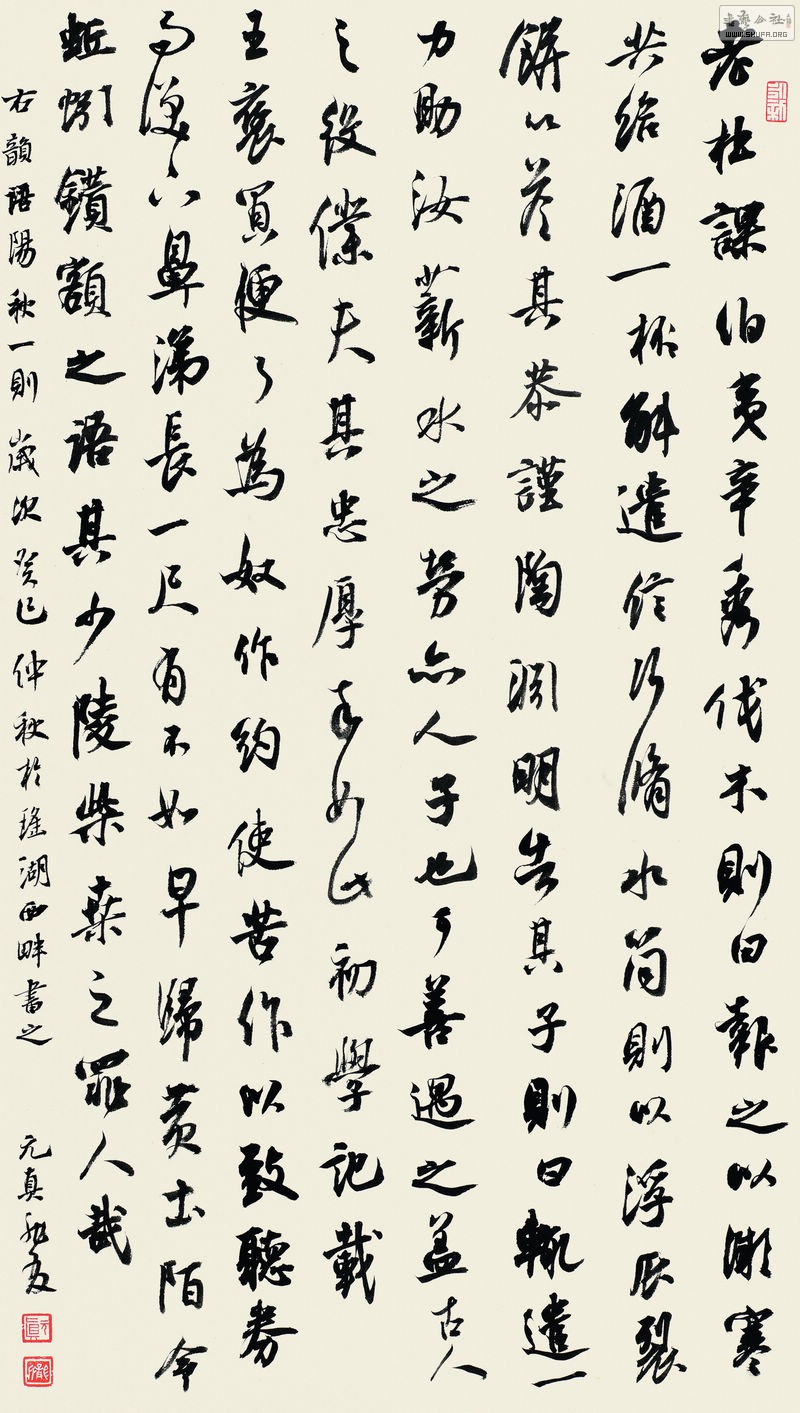 老杜課伯夷辛秀伐木則曰報之以微寒
共給酒一杯斛遣信行脩水筒則以浮瓜裂
餅以答其恭謹陶淵明告其子則曰輒遣一
力助汝薪水之勞亦人子也可善遇之蓋古人
之役僕夫其忠厚率如此初學記載
王褒買便了為奴作約使苦作以致聽券
而淚下鼻涕長一尺有不如早歸黃土陌令
蚯蚓鑽額之語其少陵柴桑之罪人哉
右韻語陽秋一則歲次癸巳仲秋於瑤湖西畔書之 元真
www.SHUFA.ORG